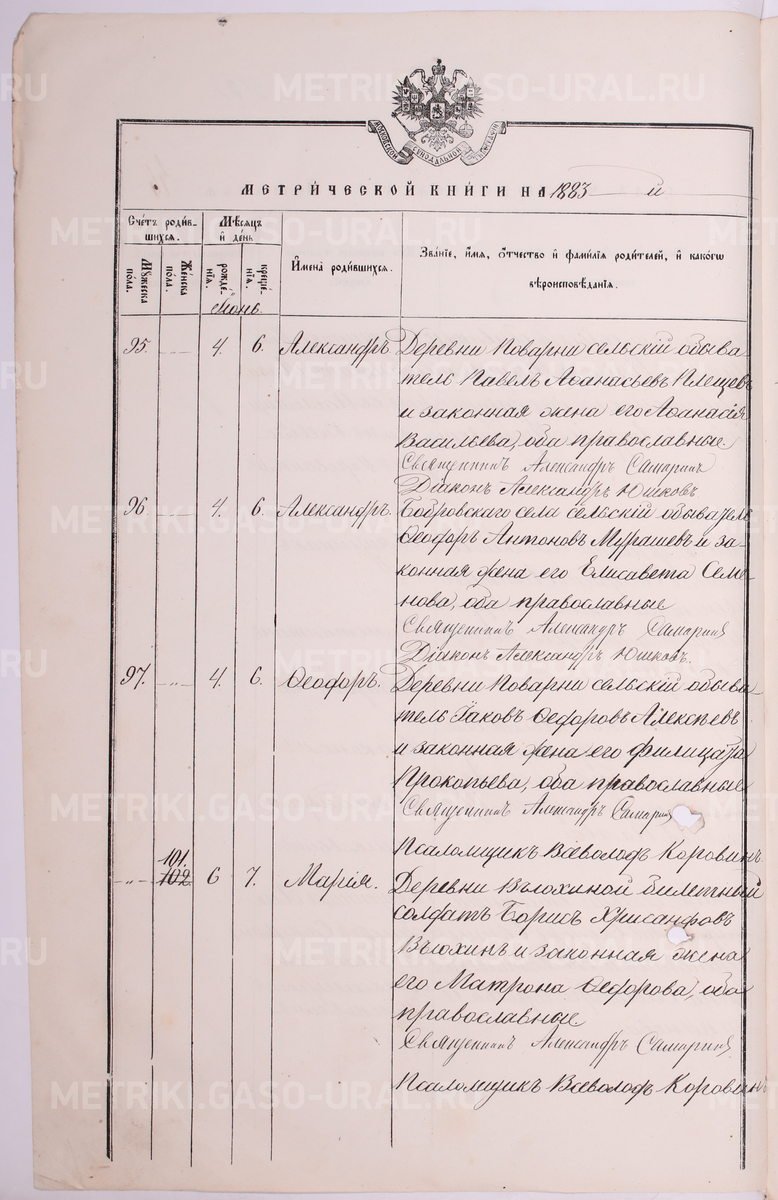 МОСКОВСКОЙ СѴНОДАЛЬНОЙ ТИПОГРАФІИ
МЕТРИ́ЧЕСКОЙ КНИ́ГИ НА 1883 й
Сче́тъ роди́в-
шихся.
Мѣ́сяцъ
и҆ де́нь
И҆мена̀ роди́вшихся.
Зва́нїе, и҆́мя, ѻ҆́тчество и҆ фами́лїя роди́телей, и҆ како́гѡ
вѣроисповѣ́данїя.
Му́жеска
по́ла.
Же́нска
по́ла.
рожде́-
нїя.
креще́-
нїя.
Іюнь.
95. 4. 6. Александръ Деревни Поварни сельскій обыва
тель Павелъ Аѳанасьевъ Плещевъ
и законная жена его Аѳанасія
Васильева, оба православные
Священникъ Александръ Самаринъ
Діаконъ Александръ Юшковъ
96. 4. 6. Александръ. Бобровскаго села сельскій обыватель
Ѳеодоръ Антоновъ Мурашевъ и за-
конная жена его Елисавета Семе
нова, оба православные
Священникъ Александръ Самаринъ
Діаконъ Александръ Юшковъ.
97. „ 4. 6. Ѳеодоръ. Деревни Поварни сельскій обыва
тель Іаковъ Ѳедоровъ Алексѣевъ
и законная жена его Филицата
Прокопьева, оба православные
Священникъ Александръ Самаринъ
Псаломщикъ Всеволодъ Коровинъ
101.
„ 102 6 7. Марія. Деревни Вьюхиной билетный
солдатъ Борисъ Хрисанфовъ
Вьюхинъ и законная жена
его Матрона Ѳедорова, оба
православные
Священникъ Александръ Самаринъ
Псаломщикъ Всеволодъ Коровинъ
METRIKI.GASO-URAL.RU